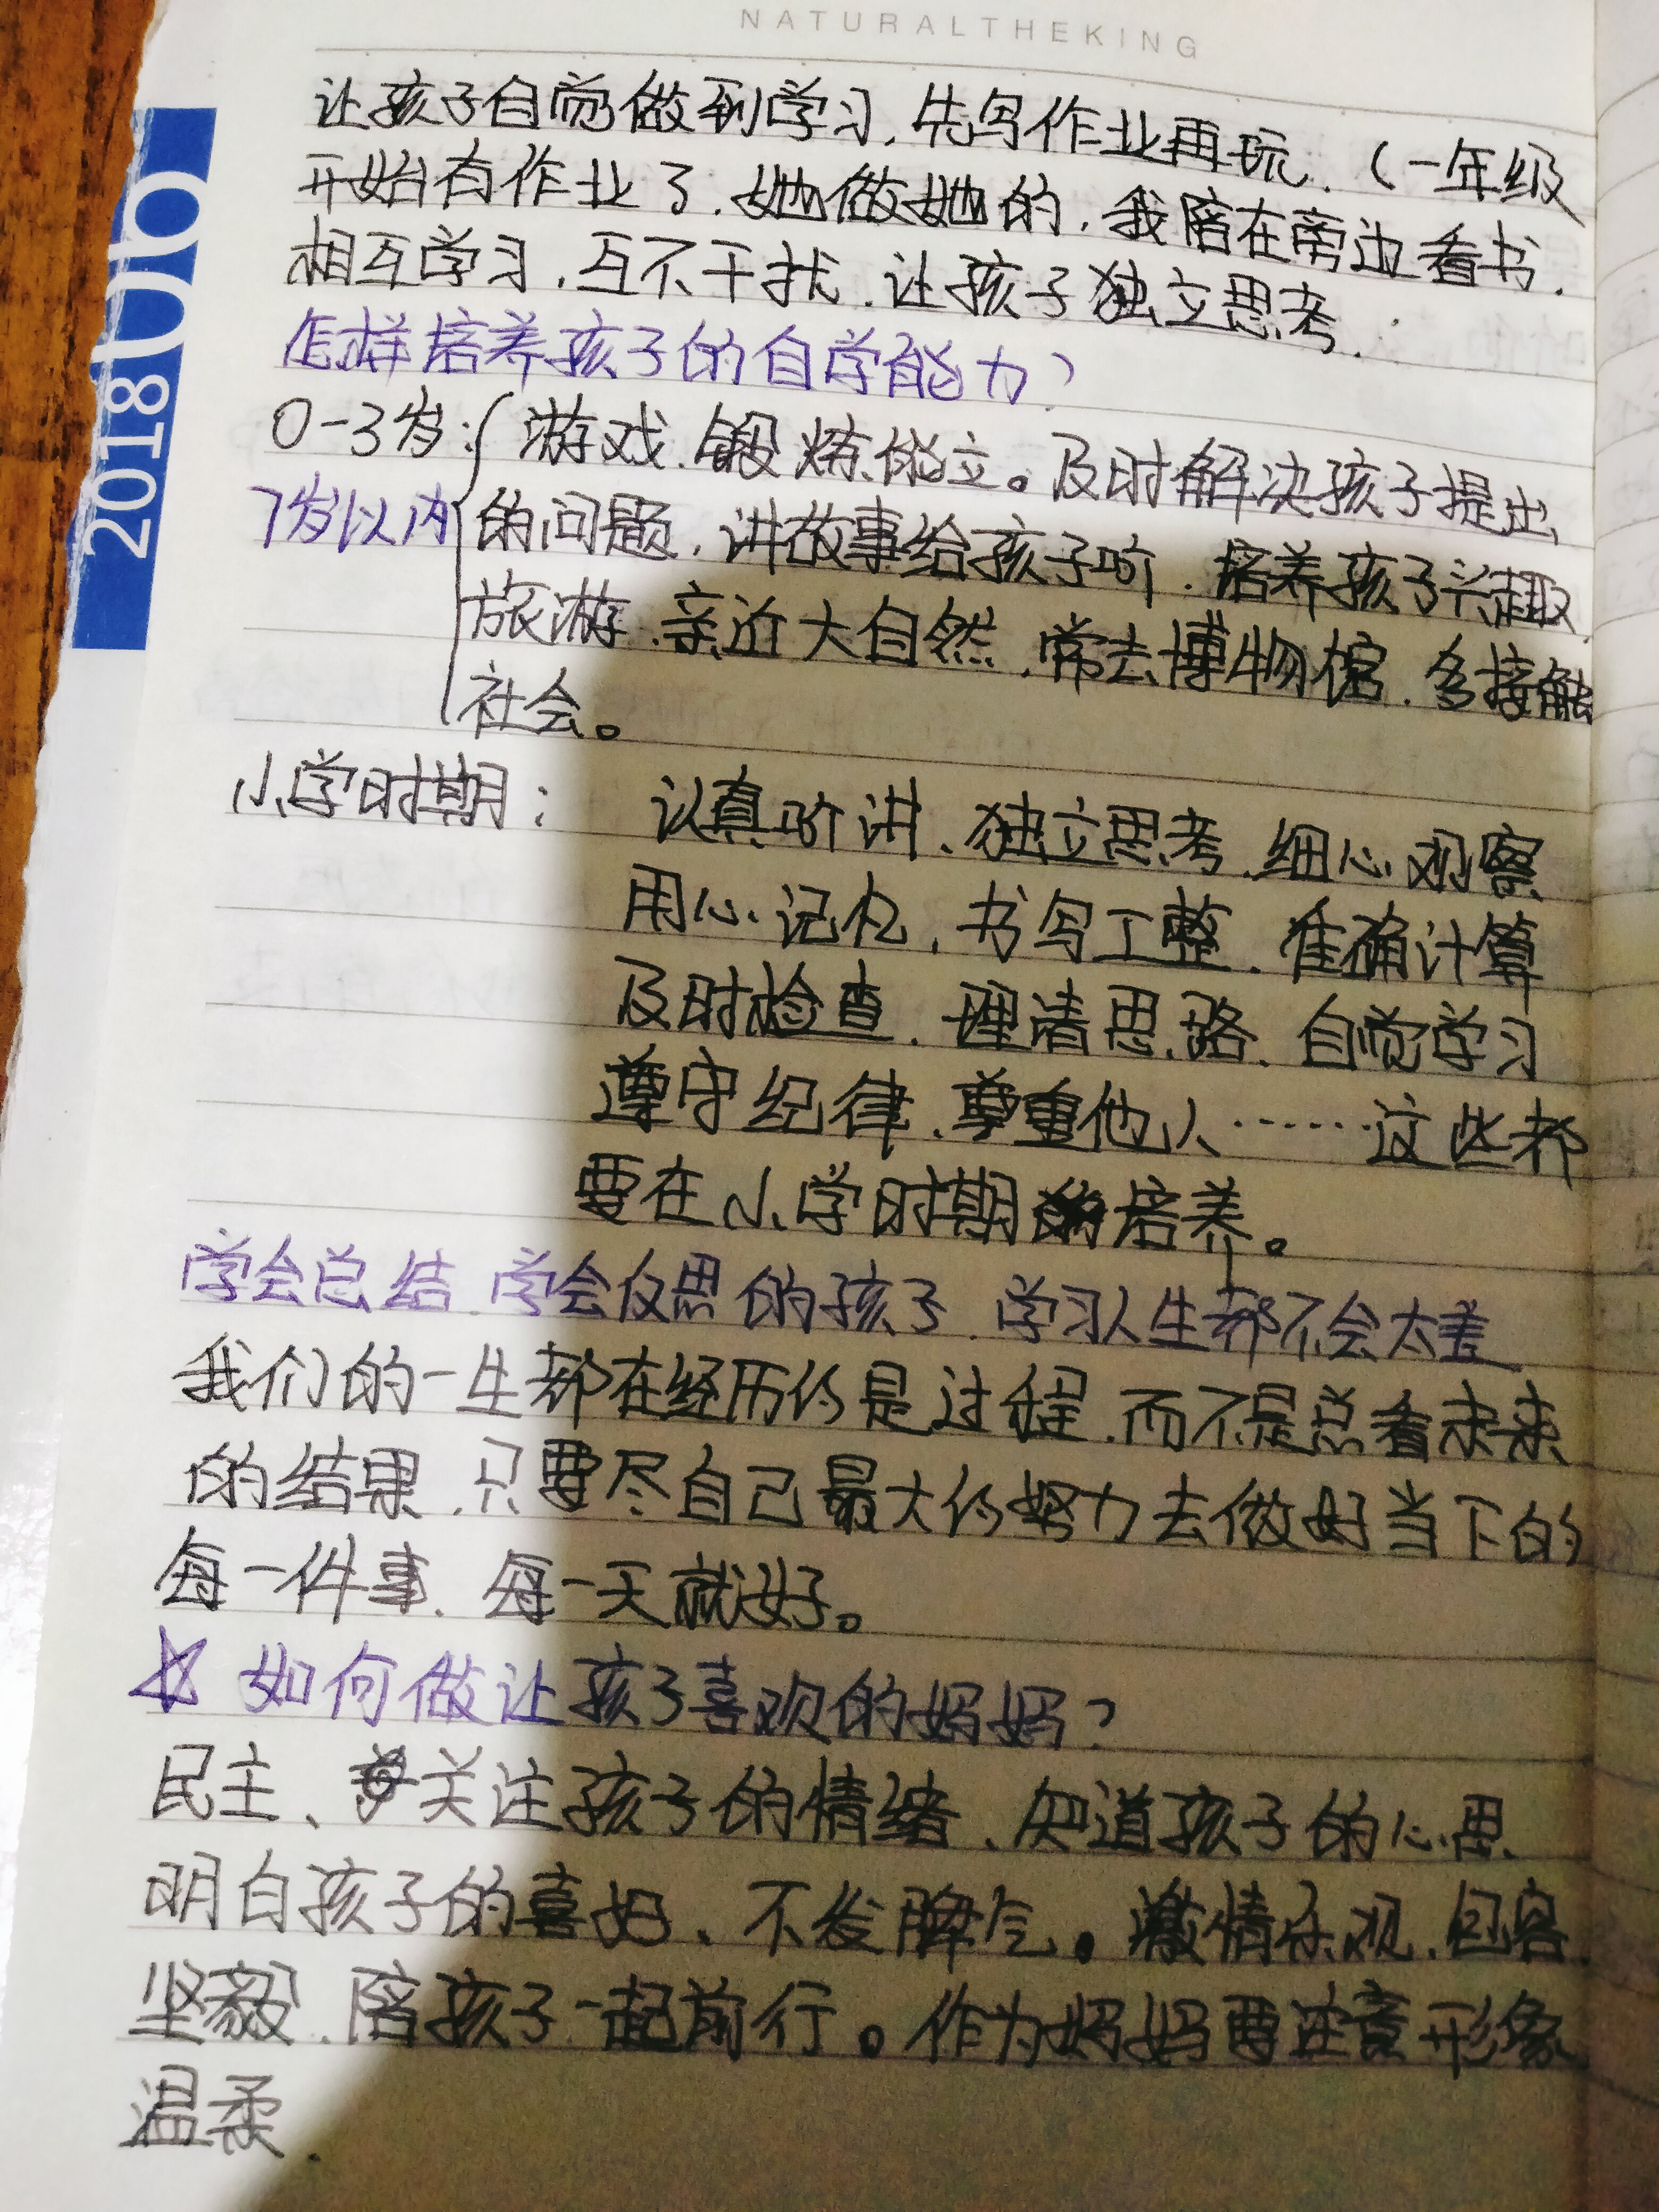 NATURALTHEKING
让孩子自觉做到学习,先写作业再玩.(一年级
开始有作业了.她做她的,我陪在旁边看书.
相互学习,互不干扰.让孩子独立思考.
怎样培养孩子的自学能力?
0-3岁:游戏.锻炼能立。及时解决孩子提出
7岁以内 的问题,讲故事给孩子听.培养孩子兴趣.
旅游.亲近大自然.常去博物馆.多接触
社会。
小学时期: 认真听讲、独立思考.细心观察
用心记忆,书写工整.准确计算
及时检查.理清思路.自觉学习
遵守纪律.尊重他人……这些都
要在小学时期培养。
学会总结.学会反思的孩子.学习人生都不会太差
我们的一生都在经历的是过程.而不是总看未来
的结果.只要尽自己最大的努力去做好当下的
每一件事.每一天就好。
☆ 如何做让孩子喜欢的妈妈?
民主、关注孩子的情绪、知道孩子的心思
明白孩子的喜好、不发脾气。激情乐观.包容.
坚毅.陪孩子一起前行。作为妈妈要注意形象
温柔.
2018